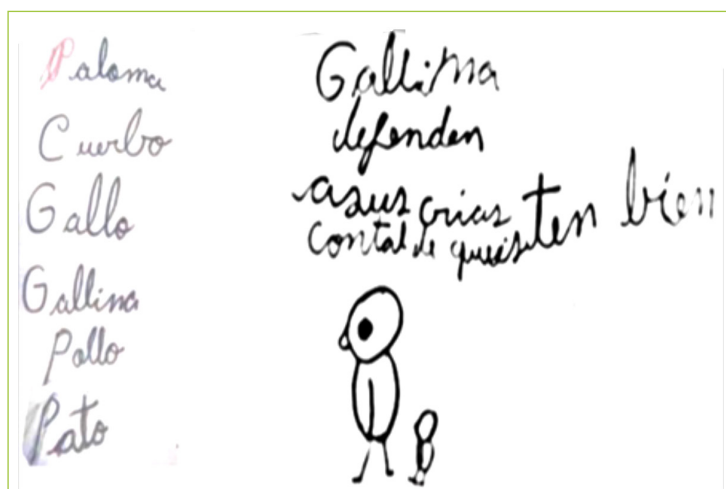 Paloma
Cuerbo
Gallo
Gallina
Pollo
Pato
Gallina
defenden
asus crias
contal de que esten bien